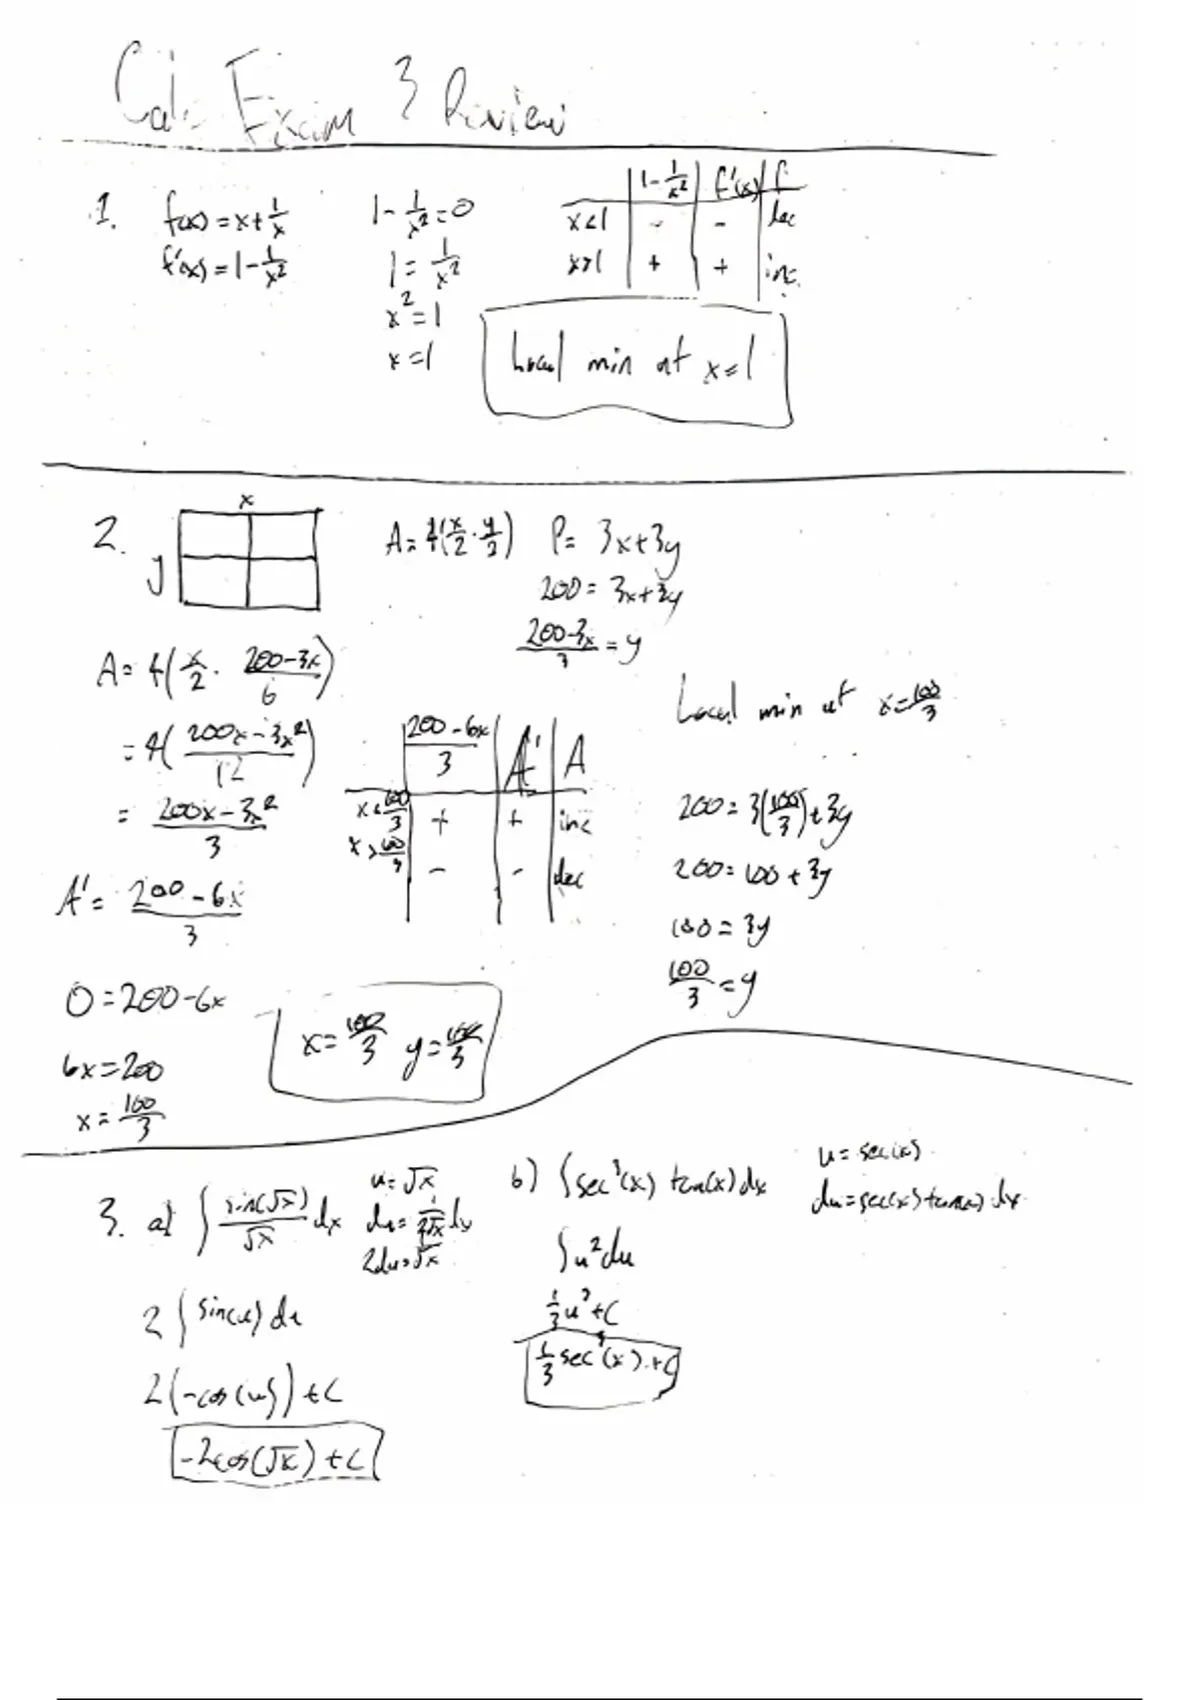 Calc Exam 3 Review
1. f(x) = x + 1/x
f'(x) = 1 - 1/x²
1 - 1/x² = 0
1 = 1/x²
x² = 1
x = 1
1 - 1/x² | f'(x) | f
x<1 | - | - | dec
x>1 | + | + | inc.
Local min at x = 1
2.
x
y
A = 4(x/2 · y/2)
P = 3x + 3y
200 = 3x + 3y
(200 - 3x)/3 = y
A = 4(x/2 · (200 - 3x)/6)
= 4((200x - 3x²)/12)
= (200x - 3x²)/3
A' = (200 - 6x)/3
0 = 200 - 6x
6x = 200
x = 100/3
(200 - 6x)/3 | A' | A
x < 100/3 | + | + | inc
x > 100/3 | - | - | dec
Local min at x = 100/3
200 = 3(100/3) + 3y
200 = 100 + 3y
100 = 3y
100/3 = y
x = 100/3 y = 100/3
3. a) ∫ sin(√x)/√x dx
u = √x
du = 1/(2√x) dx
2du = √x
2 ∫ sin(u) du
2(-cos(u)) + C
-2cos(√x) + C
b) ∫ sec³(x) tan(x) dx
u = sec(x)
du = sec(x) tan(x) dx
∫ u² du
1/3 u³ + C
1/3 sec³(x) + C